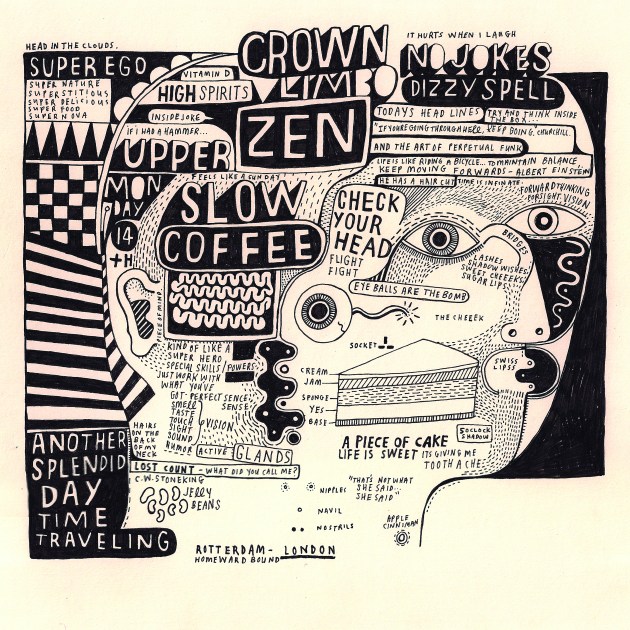 HEAD IN THE CLOUDS.
SUPER EGO
SUPER NATURE
SUPERSTITIOUS
SUPER DELICIOUS
SUPER FOOD
SUPERNOVA
VITAMIN D
HIGH SPIRITS
INSIDE JOKE
IF I HAD A HAMMER...
UPPER
CROWN
LIMBO
ZEN
IT HURTS WHEN I LAUGH
NO JOKES
DIZZY SPELL
TODAYS HEAD LINES
TRY AND THINK INSIDE
THE BOX...
"IF YOU'RE GOING THROUGH HELL, KEEP GOING, CHURCHILL.
AND THE ART OF PERPETUAL FUNK
LIFE IS LIKE RIDING A BICYCLE... TO MAINTAIN BALANCE,
KEEP MOVING FORWARDS - ALBERT EINSTEIN
HE HAS A HAIR CUT
TIME IS INFINATE
FORWARD THINKING
FORSIGHT VISION
FEELS LIKE A SUNDAY
MON
DAY
14
+H
SLOW
COFFEE
CHECK
YOUR
HEAD
FLIGHT
FIGHT
BRIDGES
LASHES
SHADOW WISHES
SWEET CHEEKS
SUGAR LIPS
EYE BALLS ARE THE BOMB
THE CHEEK
SOCKET
PIECE OF MIND.
KIND OF LIKE A
SUPER HERO
SPECIAL SKILLS/POWERS
JUST WORK WITH
WHAT YOU'VE
GOT- PERFECT SENCE
SMELL
SENSE
TASTE
TOUCH
SIGHT
SOUND
HUMOR
VISION
HAIRS
ON THE
BACK
OF MY
NECK
ACTIVE
GLANDS
CREAM
JAM
SPONGE
YES
BASE
SWISS
LIPSS
5 OCLOCK
SHADOW
A PIECE OF CAKE
LIFE IS SWEET ITS GIVING ME
TOOTH ACHE.
ANOTHER
SPLENDID
DAY
TIME
TRAVELING
LOST COUNT - WHAT DID YOU CALL ME?
C.W. STONEKING
JELLY
BEANS
NIPPLES
NAVIL
NOSTRILS
"THAT'S NOT WHAT
SHE SAID...
SHE SAID"
APPLE
CINNIMAN
ROTTERDAM - LONDON
HOMEWARD BOUND